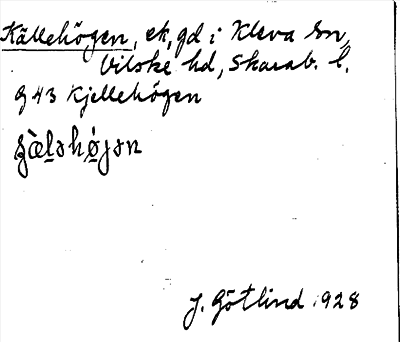 Källehögen, ek, gd i Kleva sn,
Vilske hd, Skarab. l.
G 43 Kjellehögen
J. Götlind 1928